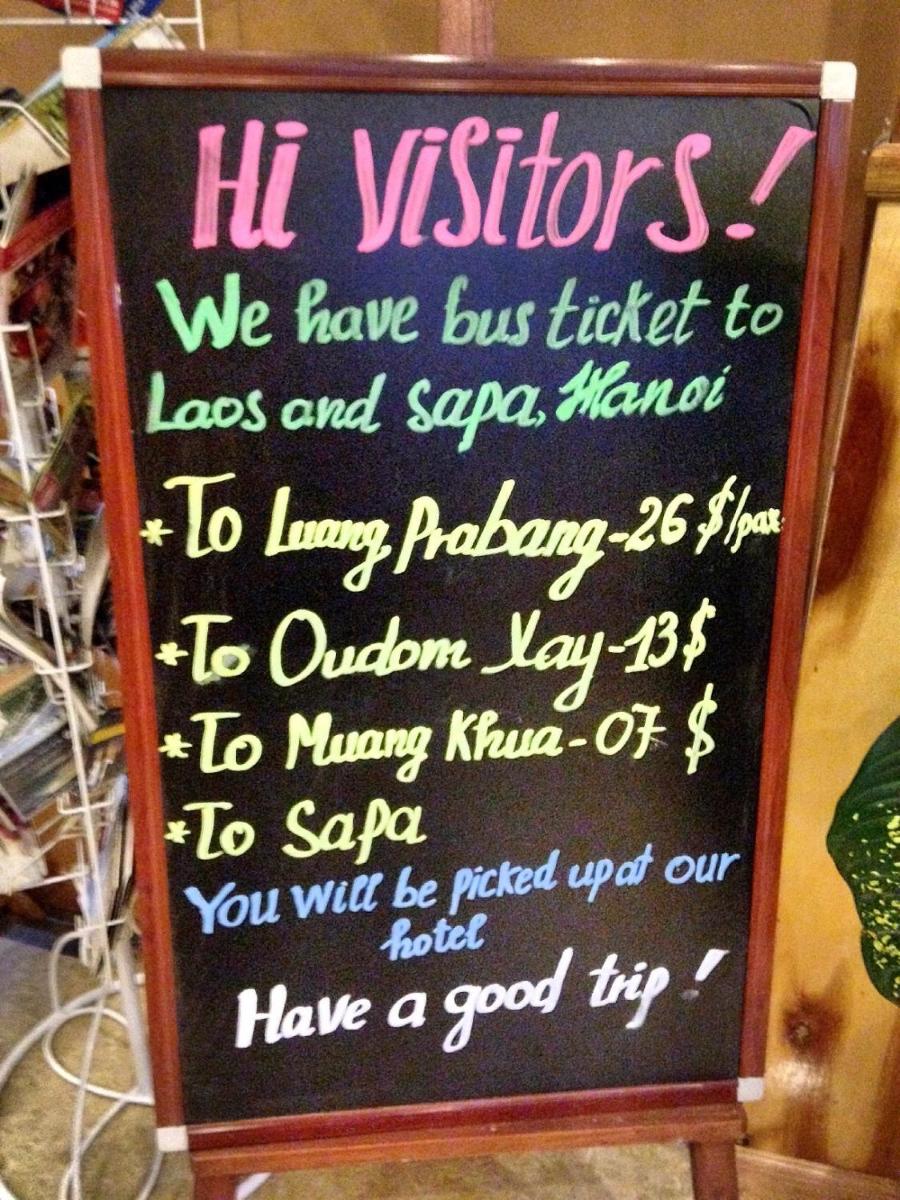 Hi Visitors!
We have bus ticket to
Laos and Sapa, Hanoi
*To Luang Prabang-26 $/pax
*To Oudom Xay-13$
*To Muang Khua-07 $
*To Sapa
You will be picked up at our
hotel
Have a good trip!